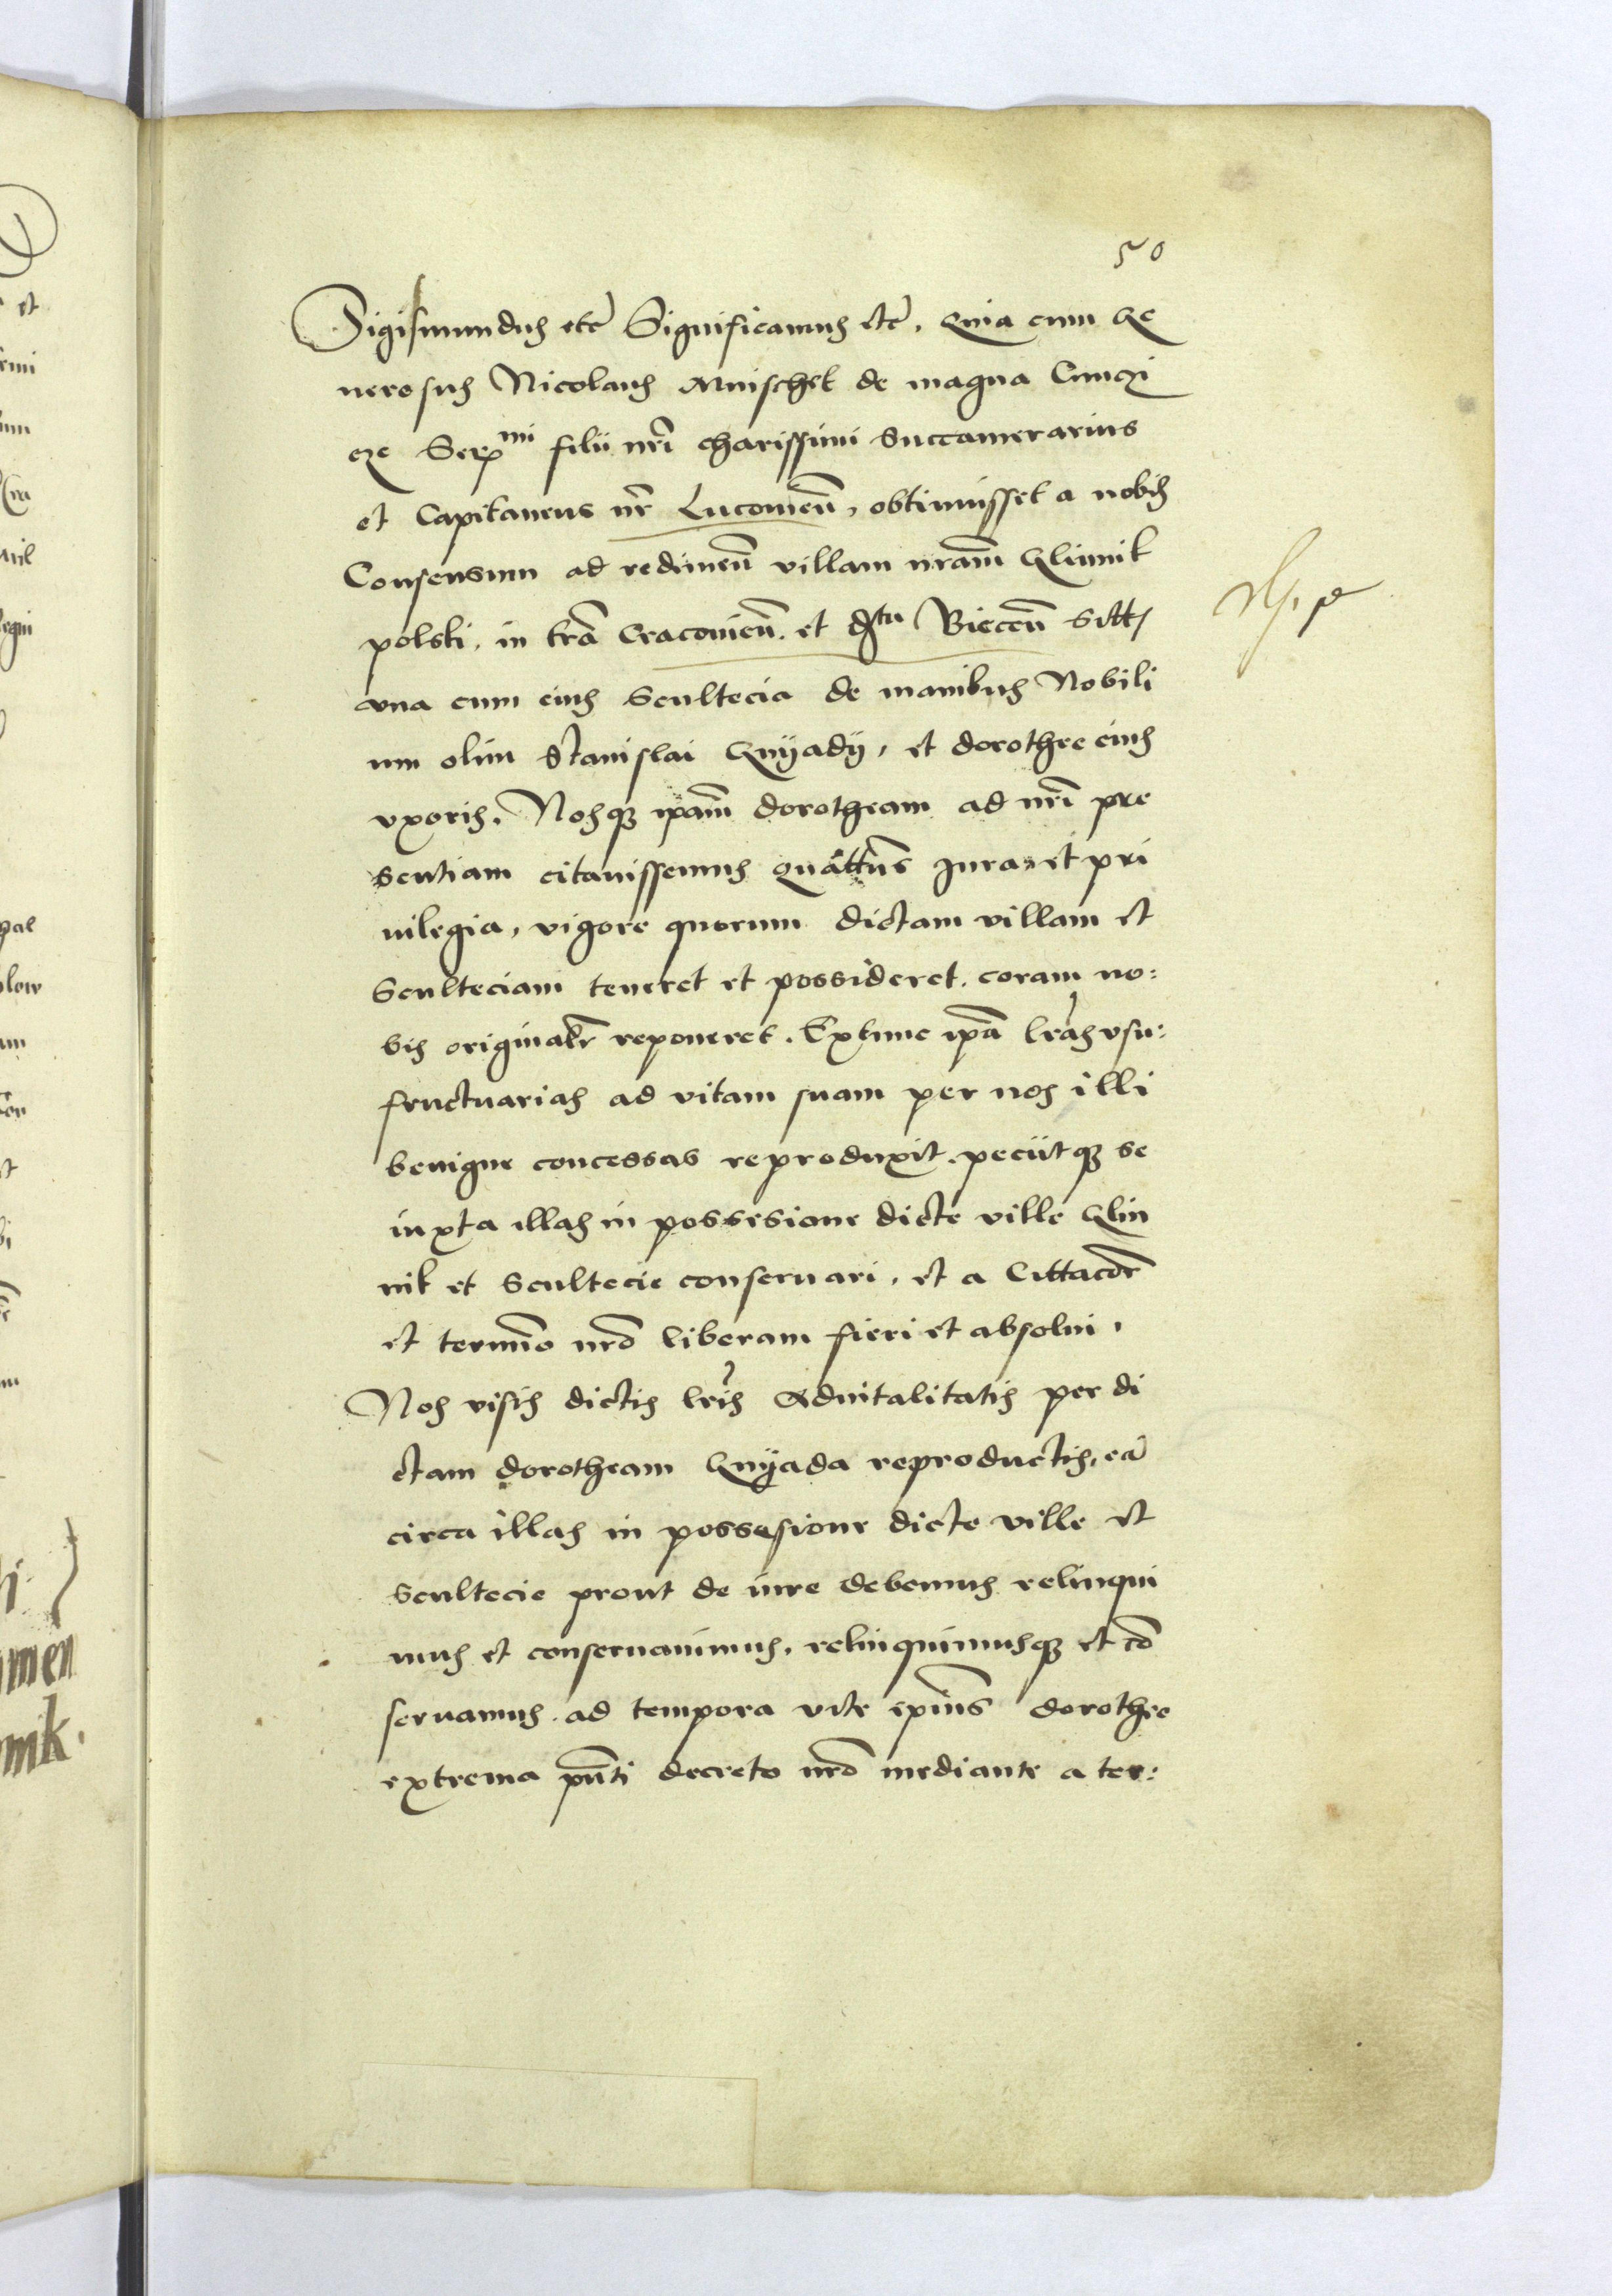 50
Sigismundus etc̄ Significamus etc̄. Quia cum Ge
nerosus Nicolaus Mnischek de magna Cunczi
cze Serᵐⁱ filii nrī charissimi Succamerarius
et Capitaneus nr̄ Lucovieñ, obtinuisset a nobis
Consensum ad redimeñ villam nram̄ Glinnik
polski, in trā Cracovieñ. et dtu Bieceñ Sitt
una cum eius Scultecia de manibus Nobili
um olim Stanislai Gnÿadÿ, et dorothee eius
vxoris, Nosqȝ ipam̄ dorotheam ad nrī pre
sentiam citauissemus quātt̄us Jura et pri
uilegia, vigore quorum dictam villam et
Sculteciam teneret et possideret. coram no:
bis originalr̄ reponeret. Extunc ipā lrās vsu:
fructuarias ad vitam suam per nos illi
benigne concessas reproduxit. peciitqȝ se
iuxta illas in possesione dicte ville Glin
nik et Scultecie conseruari, et a Cittacōē
et termīo nrō liberam fieri et absolui,
Nos visis dictis lrīs Aduitalitatis per di
ctam dorotheam Gnÿada reproductis, eā
circa illas in possesione dicte ville et
Scultecie prout de iure debemus relinqui
mus et conseruauimus, relinquimusqȝ et cō
seruamus. ad tempora vite ipīus dorothee
extrema pn̄ti decreto nrō mediante a ter: